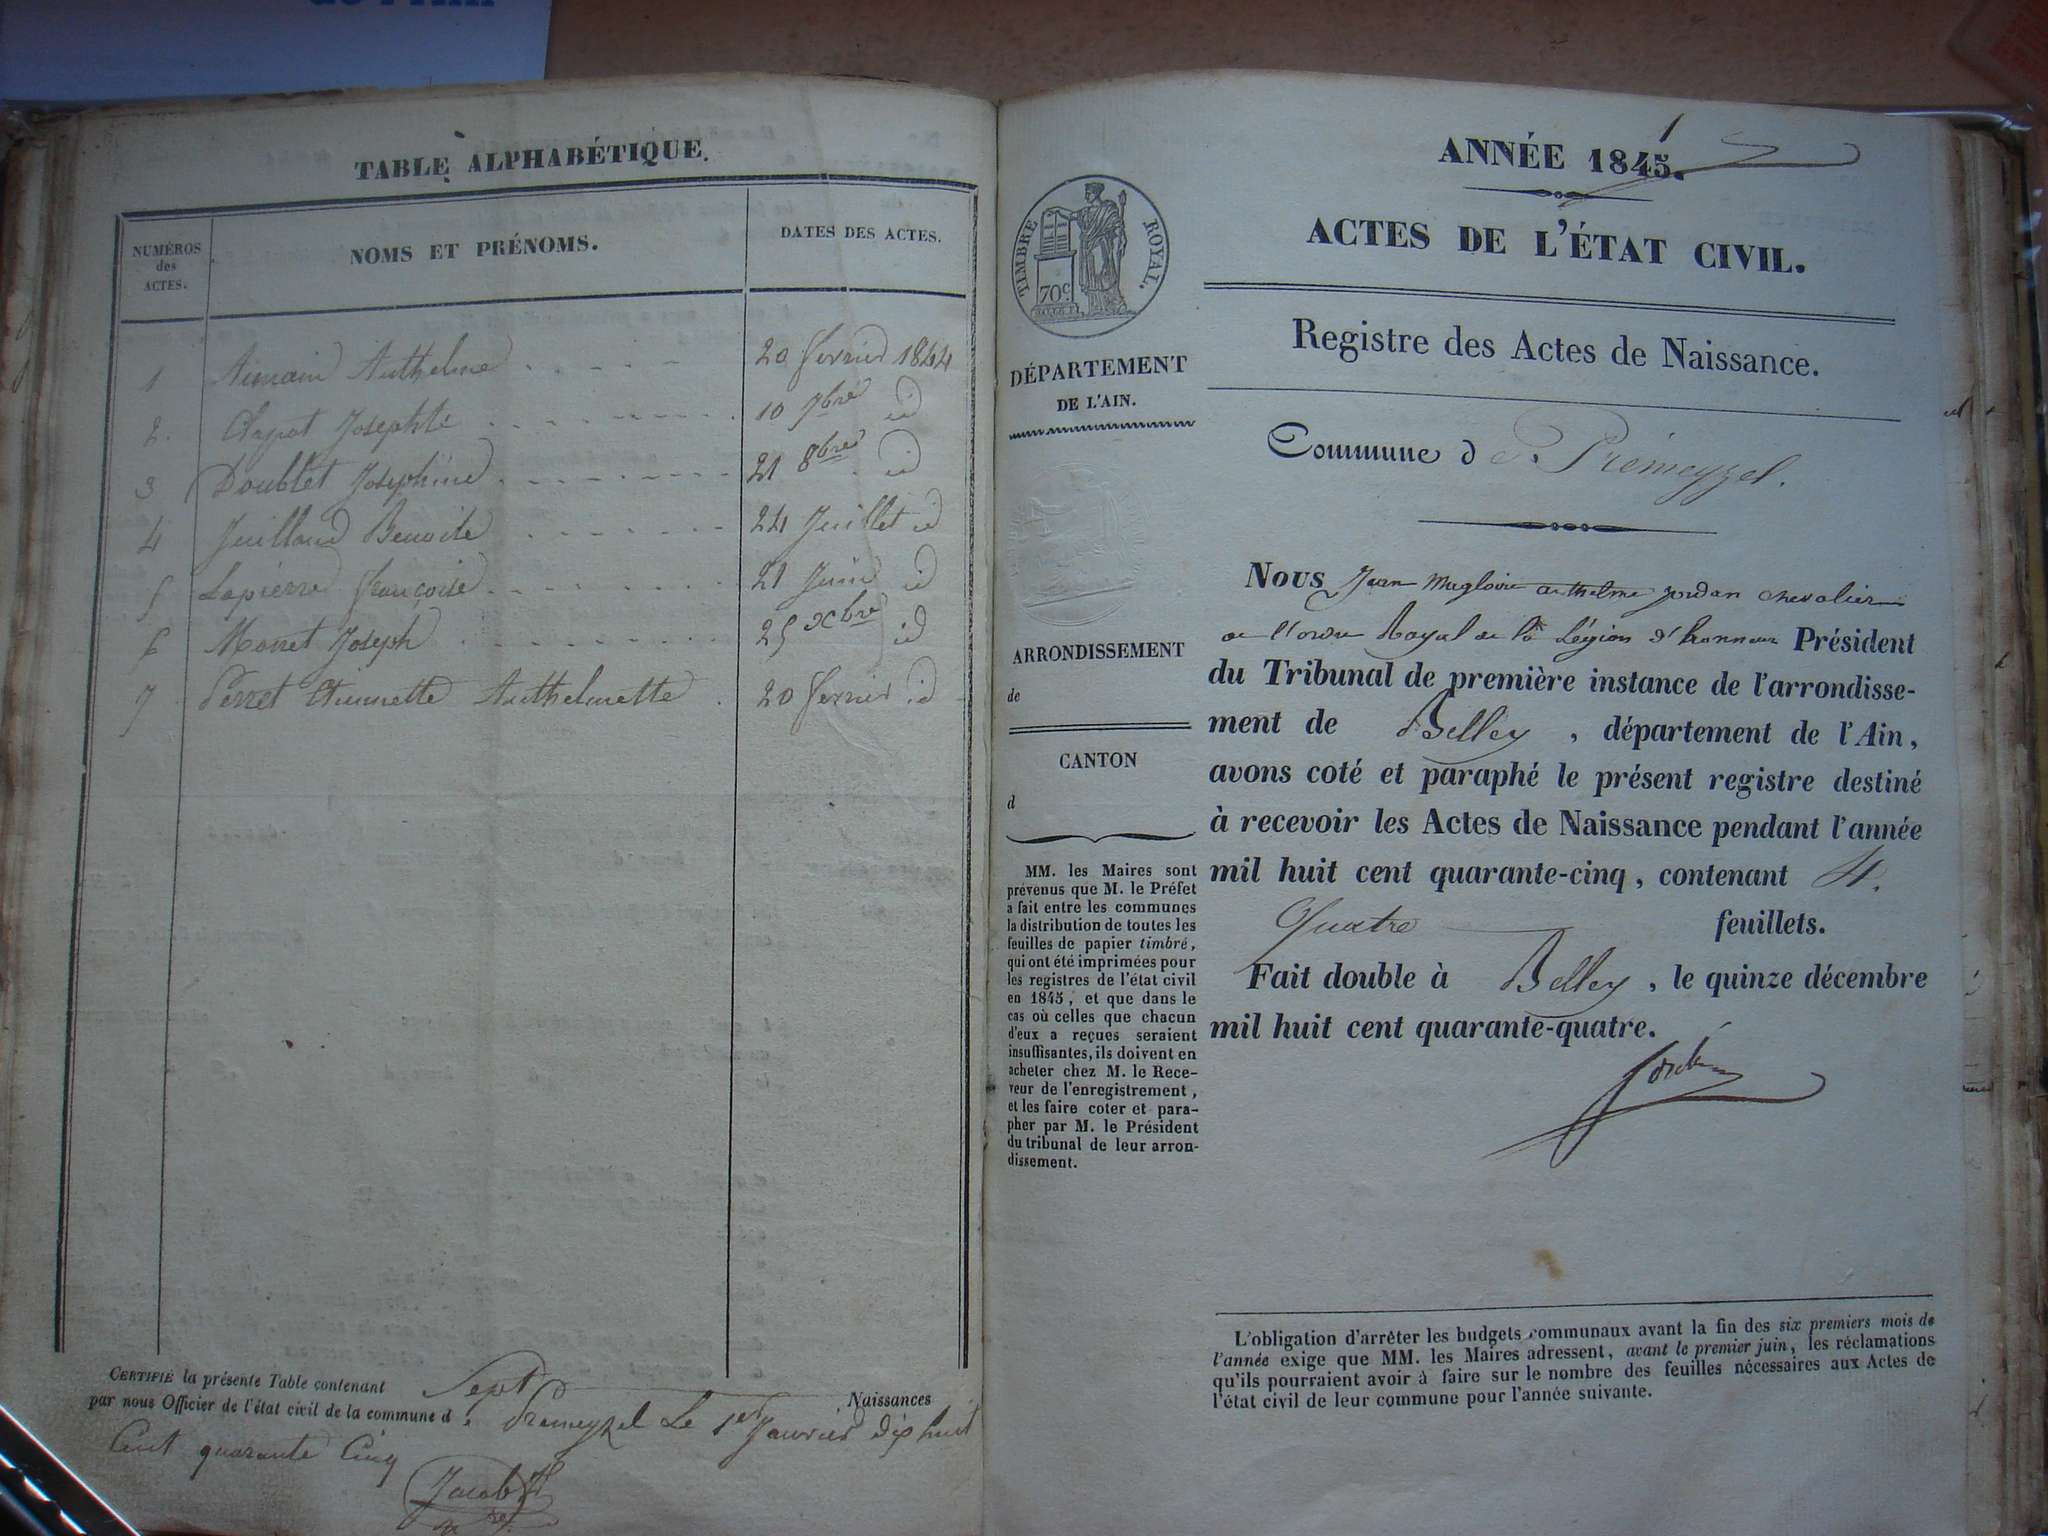 TABLE ALPHABÉTIQUE.
NUMÉROS
des
ACTES.
NOMS ET PRÉNOMS.
DATES DES ACTES.
1 Aimain Anthelme 20 fevrier 1844
2. Clapot Josephte 10 7bre id
3 Doublet Josephine 21 8bre id
4 Juilland Benoite 24 Juillet id
5 Lapierre françoise 21 Juin id
6 Monet Joseph 25 xbre id
7 Perret Etiennette Anthelmette 20 fevrier id
CERTIFIÉ la présente Table contenant Sept Naissances
par nous Officier de l'état civil de la commune de Premeyzel Le 1er Janvier dix huit
Cent quarante Cinq
Jacob
1
ANNÉE 1845.
ACTES DE L'ÉTAT CIVIL.
Registre des Actes de Naissance.
TIMBRE ROYAL.
70c.
DÉPARTEMENT
DE L'AIN.
ARRONDISSEMENT
de
CANTON
d
MM. les Maires sont
prévenus que M. le Préfet
a fait entre les communes
la distribution de toutes les
feuilles de papier timbré,
qui ont été imprimées pour
les registres de l'état civil
en 1845, et que dans le
cas où celles que chacun
d'eux a reçues seraient
insuffisantes, ils doivent en
acheter chez M. le Rece-
veur de l'enregistrement,
et les faire coter et para-
pher par M. le Président
du tribunal de leur arron-
dissement.
Commune de Prémeyzel.
Nous Jean Magloire anthelme jordan chevalier
de l'ordre Royal de la Légion d'honneur Président
du Tribunal de première instance de l'arrondisse-
ment de Belley, département de l'Ain,
avons coté et paraphé le présent registre destiné
à recevoir les Actes de Naissance pendant l'année
mil huit cent quarante-cinq, contenant 4.
Quatre feuillets.
Fait double à Belley, le quinze décembre
mil huit cent quarante-quatre.
Jordan
L'obligation d'arrêter les budgets communaux avant la fin des six premiers mois de
l'année exige que MM. les Maires adressent, avant le premier juin, les réclamations
qu'ils pourraient avoir à faire sur le nombre des feuilles nécessaires aux Actes de
l'état civil de leur commune pour l'année suivante.